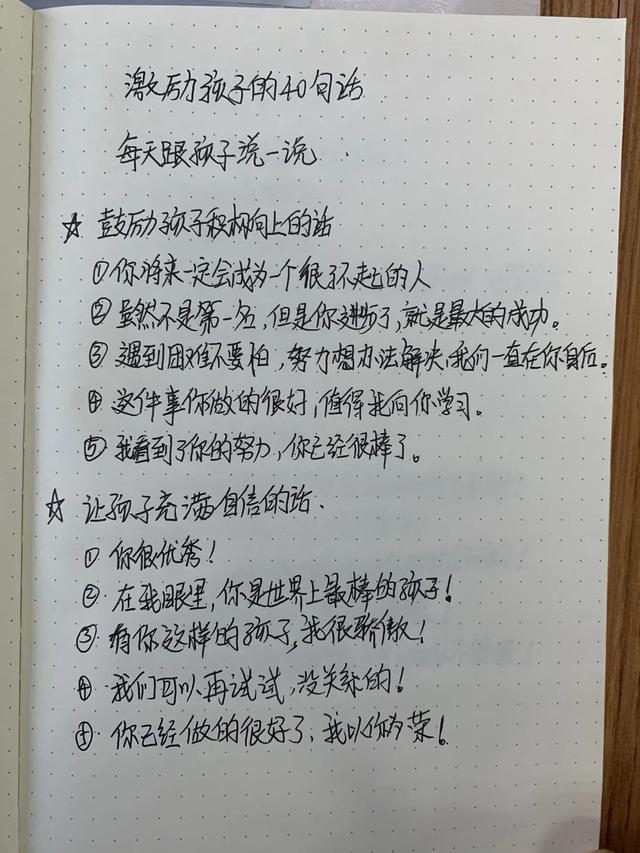 激励孩子的40句话
每天跟孩子说一说
☆ 鼓励孩子积极向上的话
①你将来一定会成为一个很了不起的人
②虽然不是第一名，但是你进步了，就是最大的成功。
③遇到困难不要怕，努力想办法解决，我们一直在你身后。
④这件事你做的很好，值得我向你学习。
⑤我看到了你的努力，你已经很棒了。
☆ 让孩子充满自信的话、
①你很优秀！
②在我眼里，你是世界上最棒的孩子！
③有你这样的孩子，我很骄傲！
④我们可以再试试，没关系的！
⑤你已经做的很好了、我以你为荣！